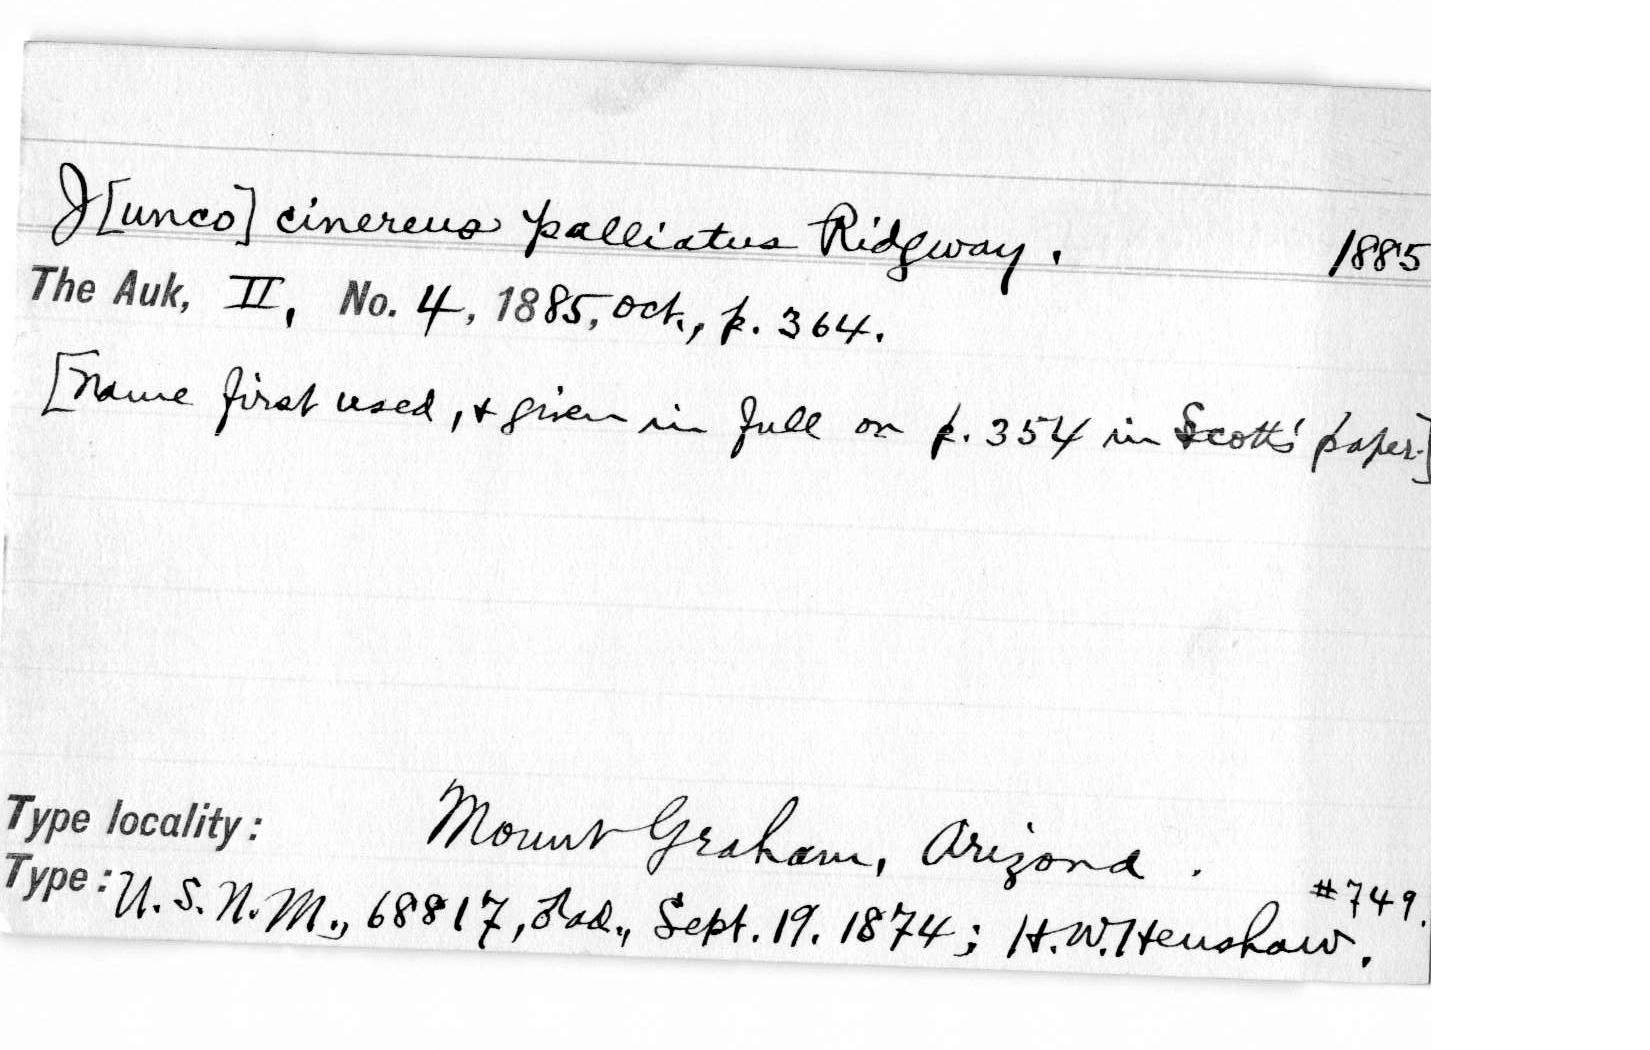 J[unco] cinereus palliatus Ridgway. 1885
The Auk, II, No. 4, 1885, Oct., p. 364.
[Name first used, & given in full on p. 354 in Scott's paper.]
Type locality: Mount Graham, Arizona.
#749.
Type: U.S.N.M., 68817, ♂ad., Sept. 19. 1874; H.W. Henshaw.